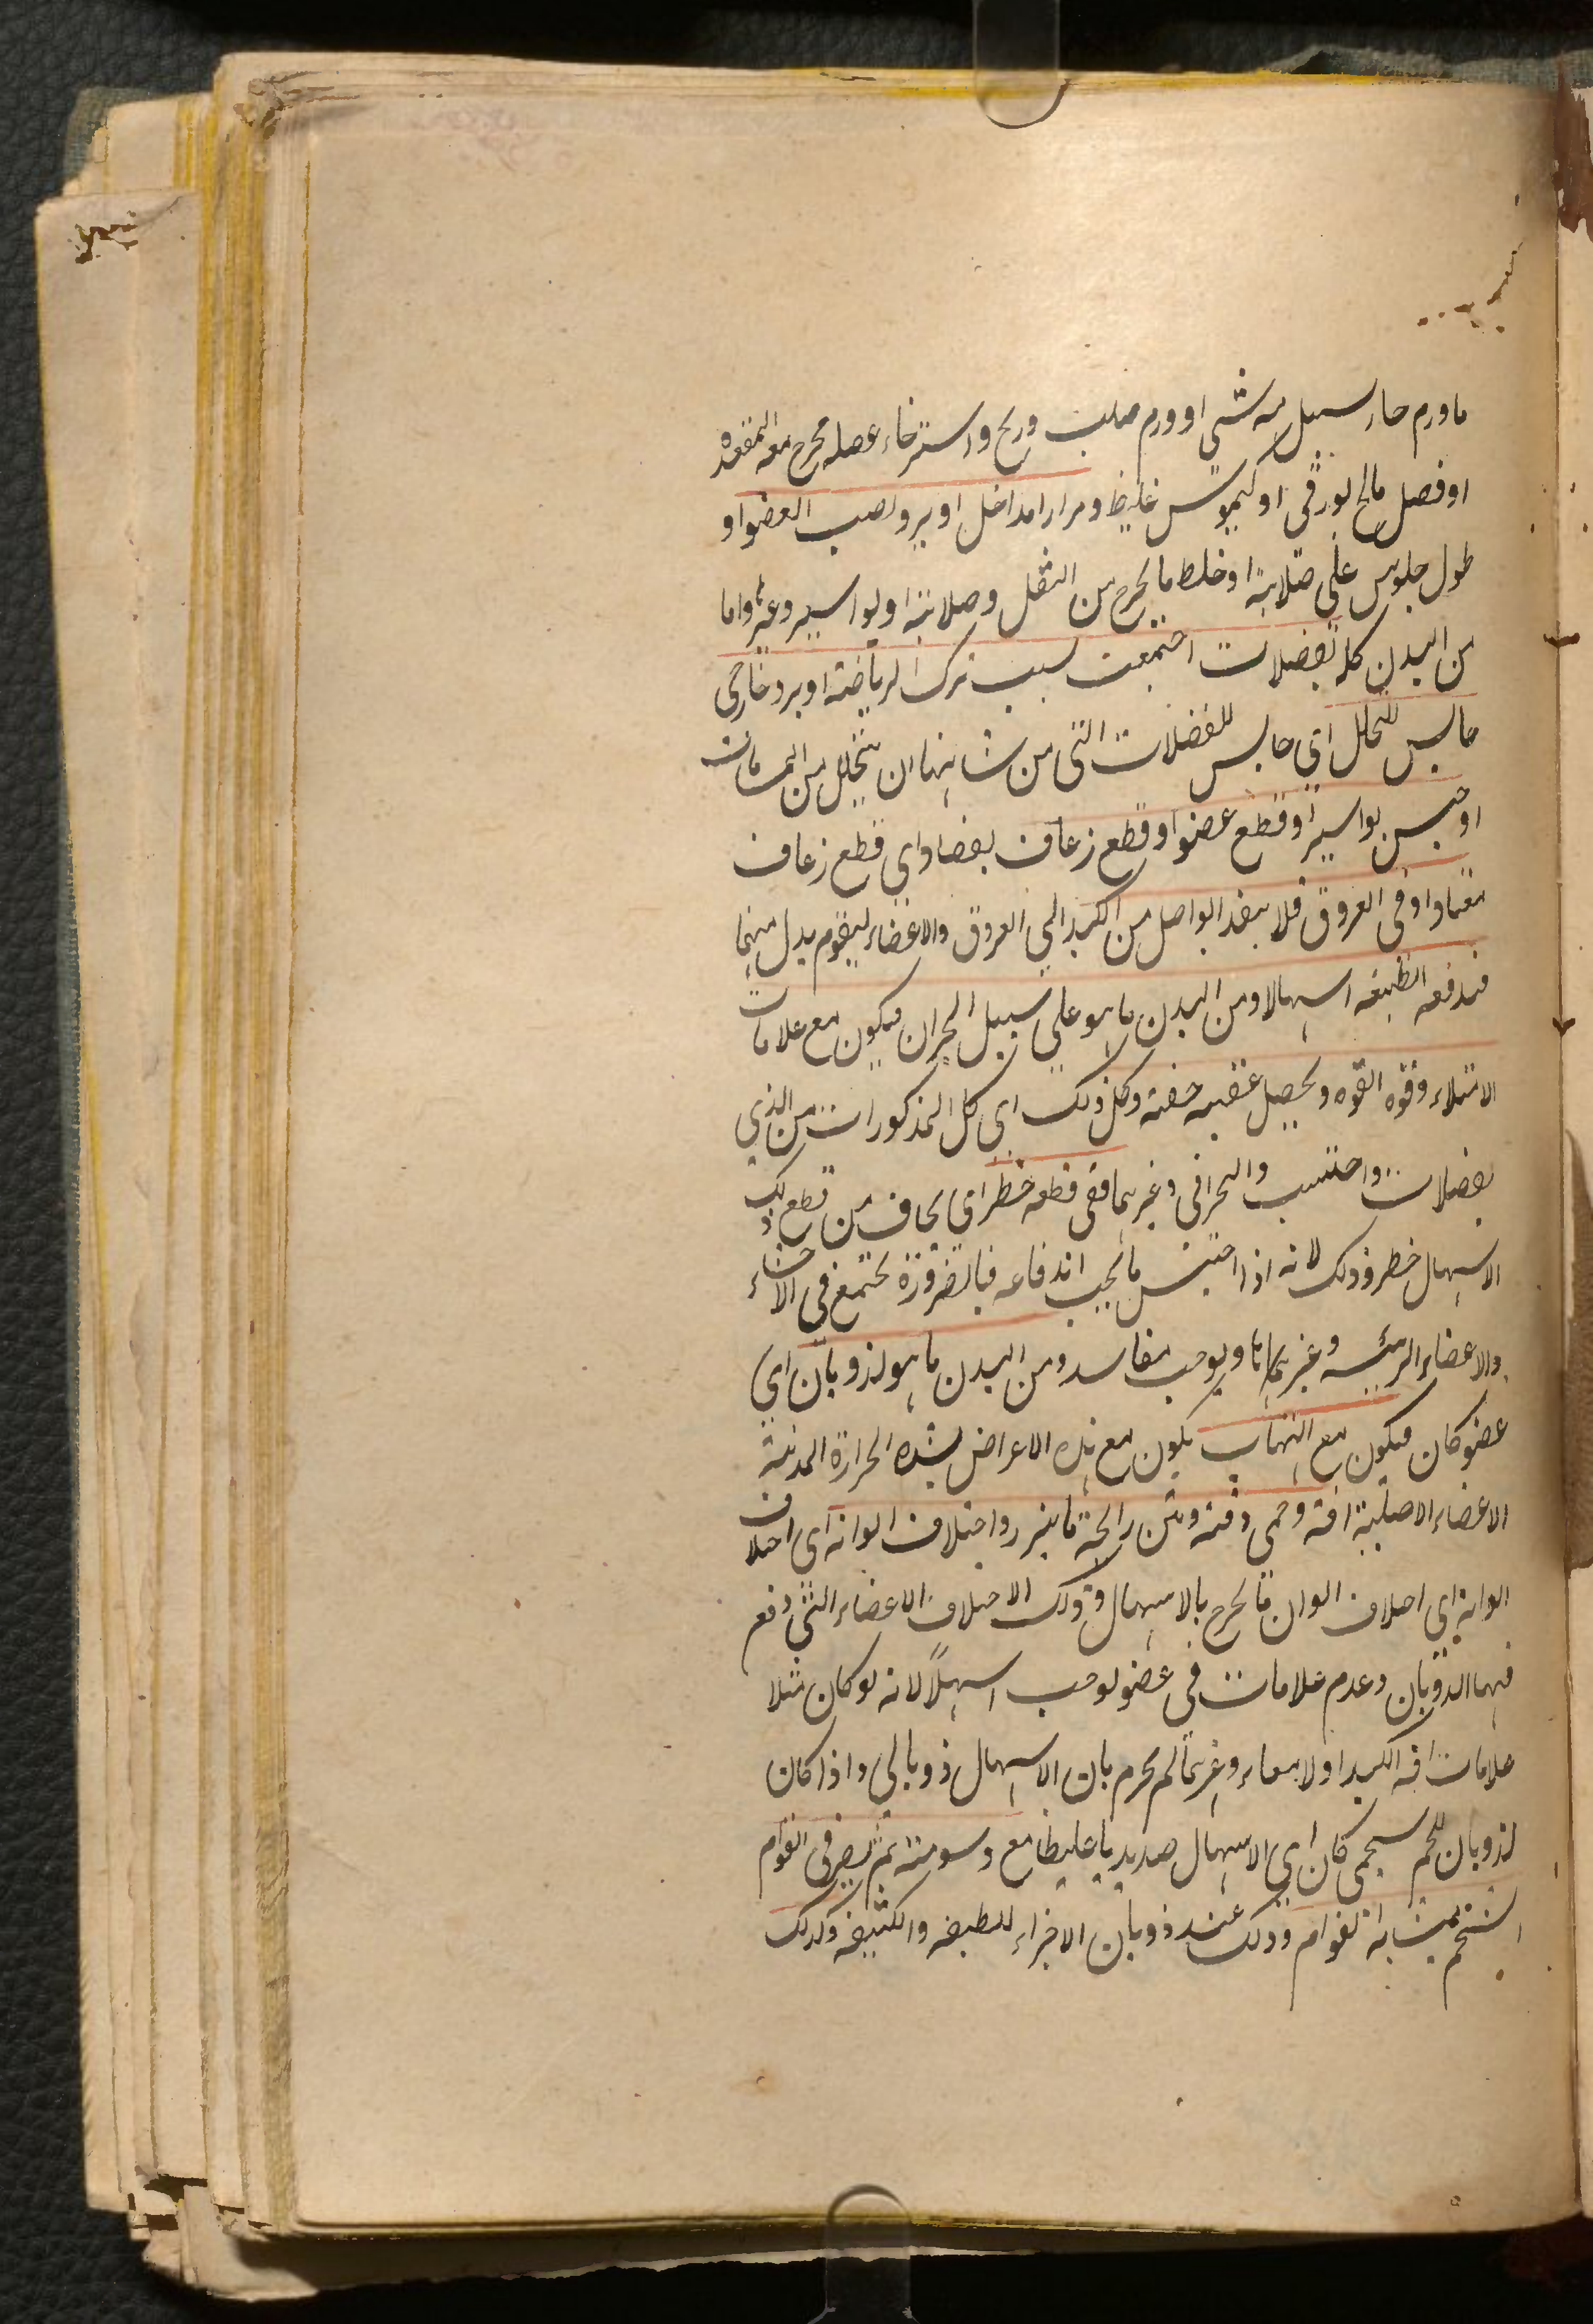 ما ورم حار يسيل منه شى او ورم صلب وريح واسترخاء عضله يخرج معه المقعدة
او فضل مالح بورقى او كيموس غليظ ومرار مداخل او برد يصيب العضو او
طول جلوس على صلابة او غلظ ما يخرج من الثفل وصلابته او بواسير وغيرها واما
من البدن كله لفضلات اجتمعت بسبب ترك الرياضة او برد خارجى
حابس للتحلل اى حابس للفضلات التى من شانها ان يتحلل من المسامات
او حبس بواسير او قطع عضو او قطع زعاف يعتاد اى قطع زعاف
معتاد او فى العروق فلا ينفذ الواصل من الكبد الى العروق والاعضاء ليقوم بدل منهما
فيدفعه الطبيعه اسهالا ومن البدن ما هو على سبيل البحران فيكون مع علامات
الامتلاء وقوه القوه ويحصل عقيبه خفته وكل ذلك اى كل المذكورات من الذى
لفضلات واحتبست والبحرانى وغيرهما ففى قطعه خطر اى يخاف من قطع ذلك
الاسهال خطر وذلك لانه اذا احتبس ما يجب اندفاعه فبالضرورة يجتمع فى الاحشاء
والاعضاء الرئيسه وغيرهما ويوجب مفاسد ومن البدن ما هو لذوبان اى
عضو كان فيكون مع التهاب يكون مع هذه الاعراض لشده الحرارة المذيبة
الاعضاء الاصلية افة وحمى دقته ونتن رايحة ما يبرز واختلاف الوانه اى اختلاف
الوانه اى اختلاف الوان ما يخرج بالاسهال وذلك الاختلاف الاعضاء التى وقع
فيها الذوبان وعدم علامات فى عضو يوجب اسهالاً لانه لو كان مثلا
علامات افه الكبد او لامعاء وغيرهما لم يجزم بان الاسهال ذوبانى واذا كان
لذوبان للحم سحمى كان اى الاسهال صديديا غليظا مع دسومته ثم يصير فى القوام
الشحم بمشابه القوام وذلك عند ذوبان الاجزاء اللطيفه والكثيفه وكذلك